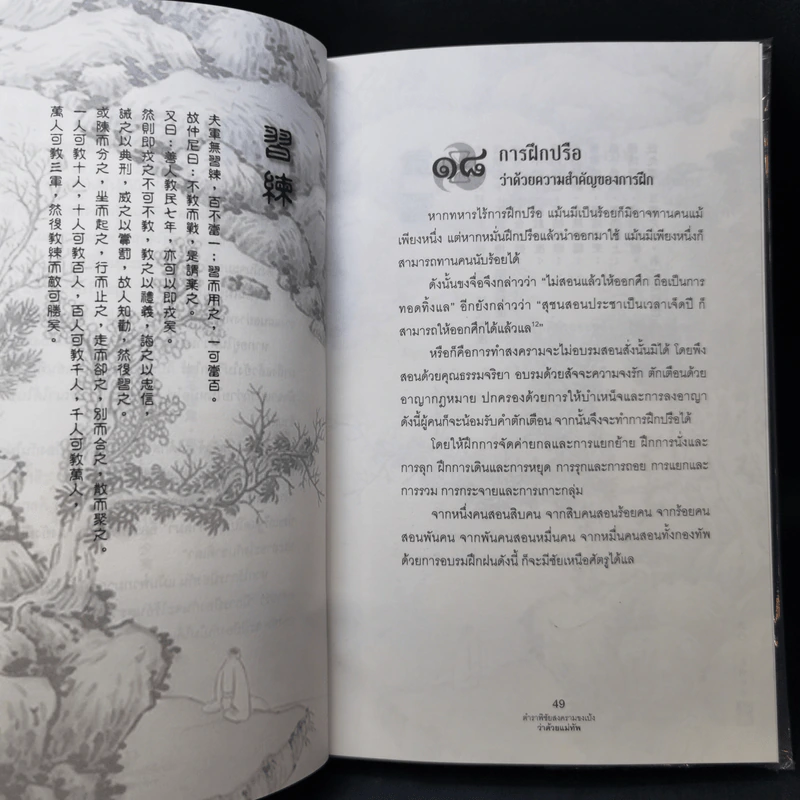 習練
夫軍無習練，百不當一；習而用之，一可當百。
故仲尼曰：不教而戰，是謂棄之。
又曰：善人教民七年，亦可以即戎矣。
然則即戎之不可不教，教之以禮義，誨之以忠信，
誡之以典刑，威之以賞罰，故人知勸，然後習之。
或陳而分之，坐而起之，行而止之，走而卻之，別而合之，散而聚之。
一人可教十人，十人可教百人，百人可教千人，千人可教萬人，
萬人可教三軍，然後教練而敵可勝矣。
๑๘ การฝึกปรือ
ว่าด้วยความสำคัญของการฝึก
หากทหารไร้การฝึกปรือ แม้นมีเป็นร้อยก็มิอาจทานคนแม้
เพียงหนึ่ง แต่หากหมั่นฝึกปรือแล้วนำออกมาใช้ แม้นมีเพียงหนึ่งก็
สามารถทานคนนับร้อยได้
ดังนั้นขงจื่อจึงกล่าวว่า “ไม่สอนแล้วให้ออกศึก ถือเป็นการ
ทอดทิ้งแล” อีกยังกล่าวว่า “สุชนสอนประชาเป็นเวลาเจ็ดปี ก็
สามารถให้ออกศึกได้แล้วแล12”
หรือก็คือการทำสงครามจะไม่อบรมสอนสั่งนั้นมิได้ โดยพึง
สอนด้วยคุณธรรมจริยา อบรมด้วยสัจจะความจงรัก ตักเตือนด้วย
อาญากฎหมาย ปกครองด้วยการให้บำเหน็จและการลงอาญา
ดังนี้ผู้คนก็จะน้อมรับคำตักเตือน จากนั้นจึงจะทำการฝึกปรือได้
โดยให้ฝึกการจัดค่ายกลและการแยกย้าย ฝึกการนั่งและ
การลุก ฝึกการเดินและการหยุด การรุกและการถอย การแยกและ
การรวม การกระจายและการเกาะกลุ่ม
จากหนึ่งคนสอนสิบคน จากสิบคนสอนร้อยคน จากร้อยคน
สอนพันคน จากพันคนสอนหมื่นคน จากหมื่นคนสอนทั้งกองทัพ
ด้วยการอบรมฝึกฝนดังนี้ ก็จะมีชัยเหนือศัตรูได้แล
49
ตำราพิชัยสงครามขงเบ้ง
ว่าด้วยแม่ทัพ